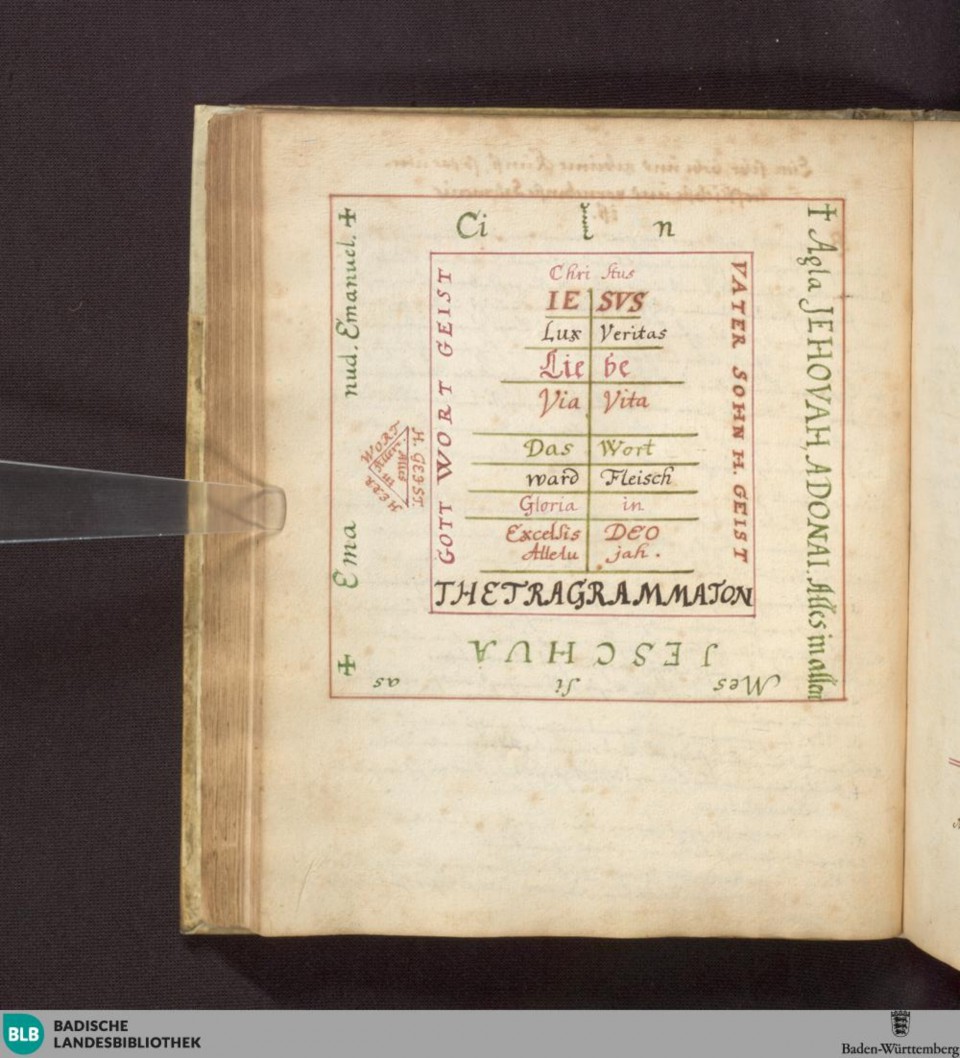 Ci l n
† Agla JEHOVAH, ADONAI. Alles in allen
nud. Emanuel. ✠
✠ Ema
GOTT WORT GEIST
VATER SOHN H. GEIST
WORT
H. GEIST.
HERR
Alles
in
Allen.
Chri stus
IE SVS
Lux Veritas
Lie be
Via Vita
Das Wort
ward Fleisch
Gloria in
Excelsis DEO
Allelu jah.
THETRAGRAMMATON
JESCHUA
Mes si as
BLB BADISCHE
LANDESBIBLIOTHEK
Baden-Württemberg